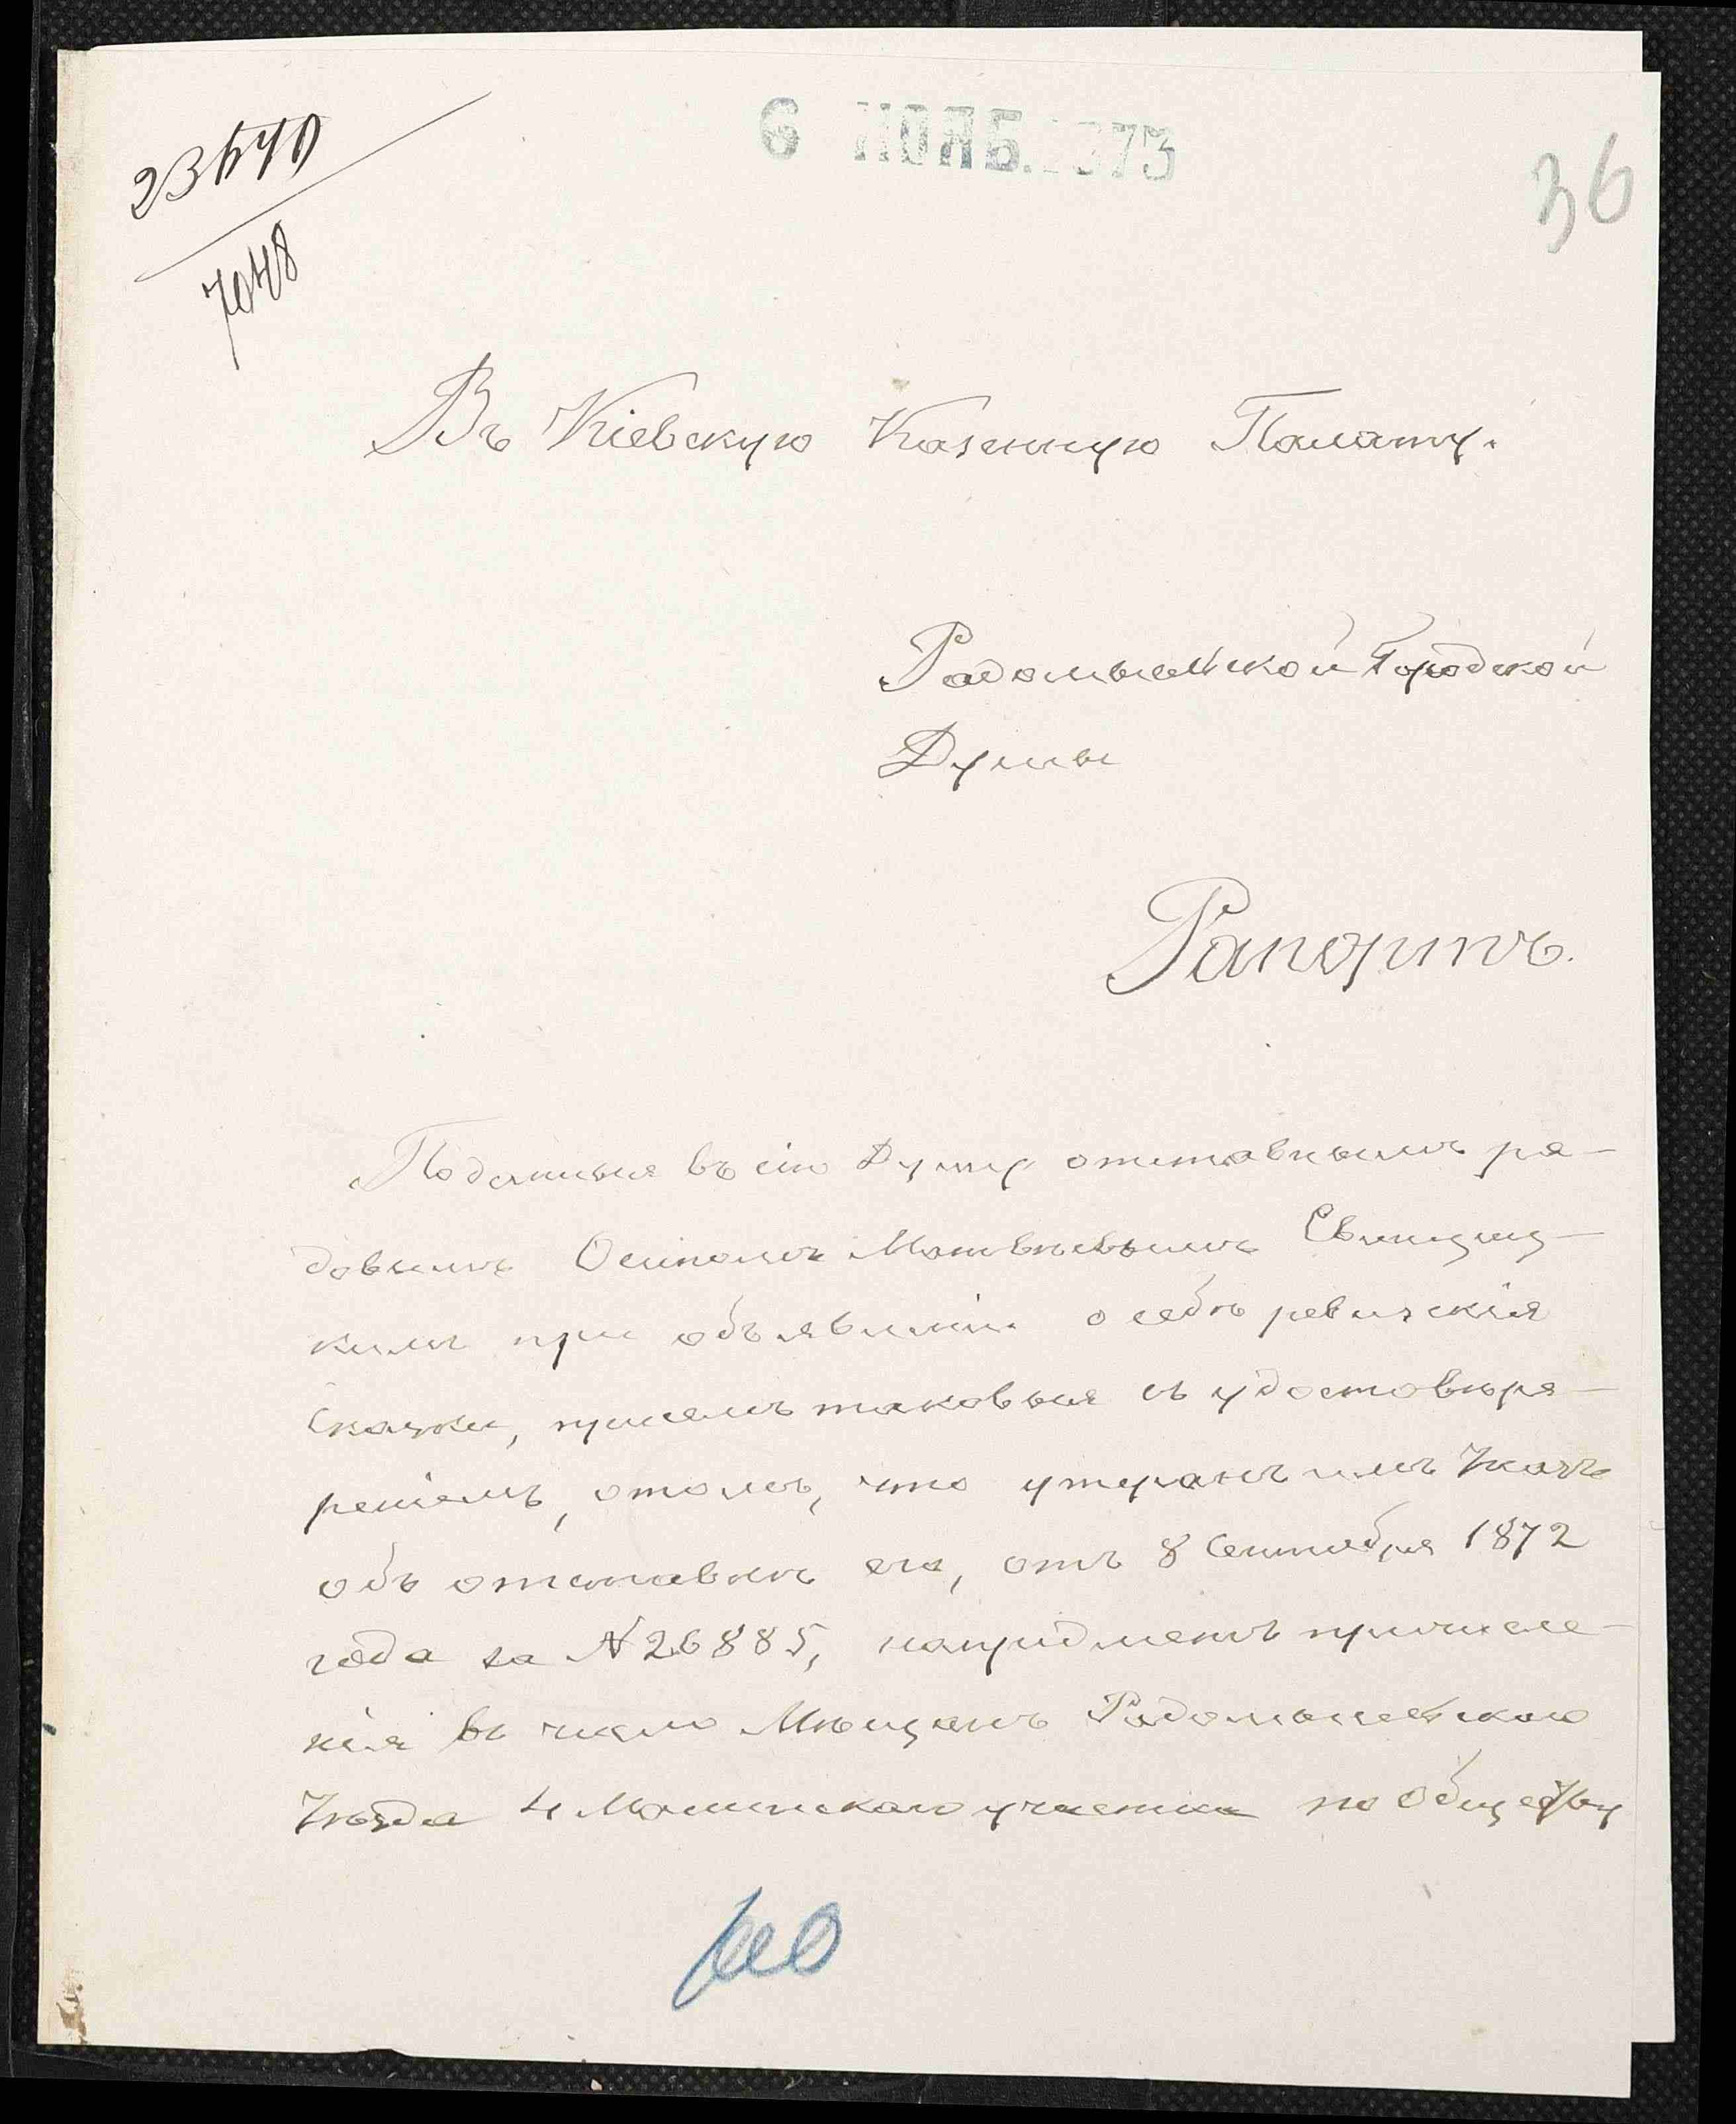 6 НОЯБ. 1873
36
7048
Въ Кіевскую Казенную Палату.
Радомысльской Городской
Думы
Рапортъ.
Поданныя въ сію Думу отставнымъ ря-
довымъ Осипомъ Матвѣевымъ Свинциц-
кимъ при объявленіи о себѣ ревизскія
Сказки, при чемъ таковыя съ удостовѣре-
реніемъ, о томъ, что утерянъ имъ Указъ
объ отставкѣ его, отъ 8 Сентября 1872
года за N 26885, на предметъ причисле-
нія въ число Мѣщанъ Радомысльскаго
Уѣзда 4 Малинскаго участка по Обществу